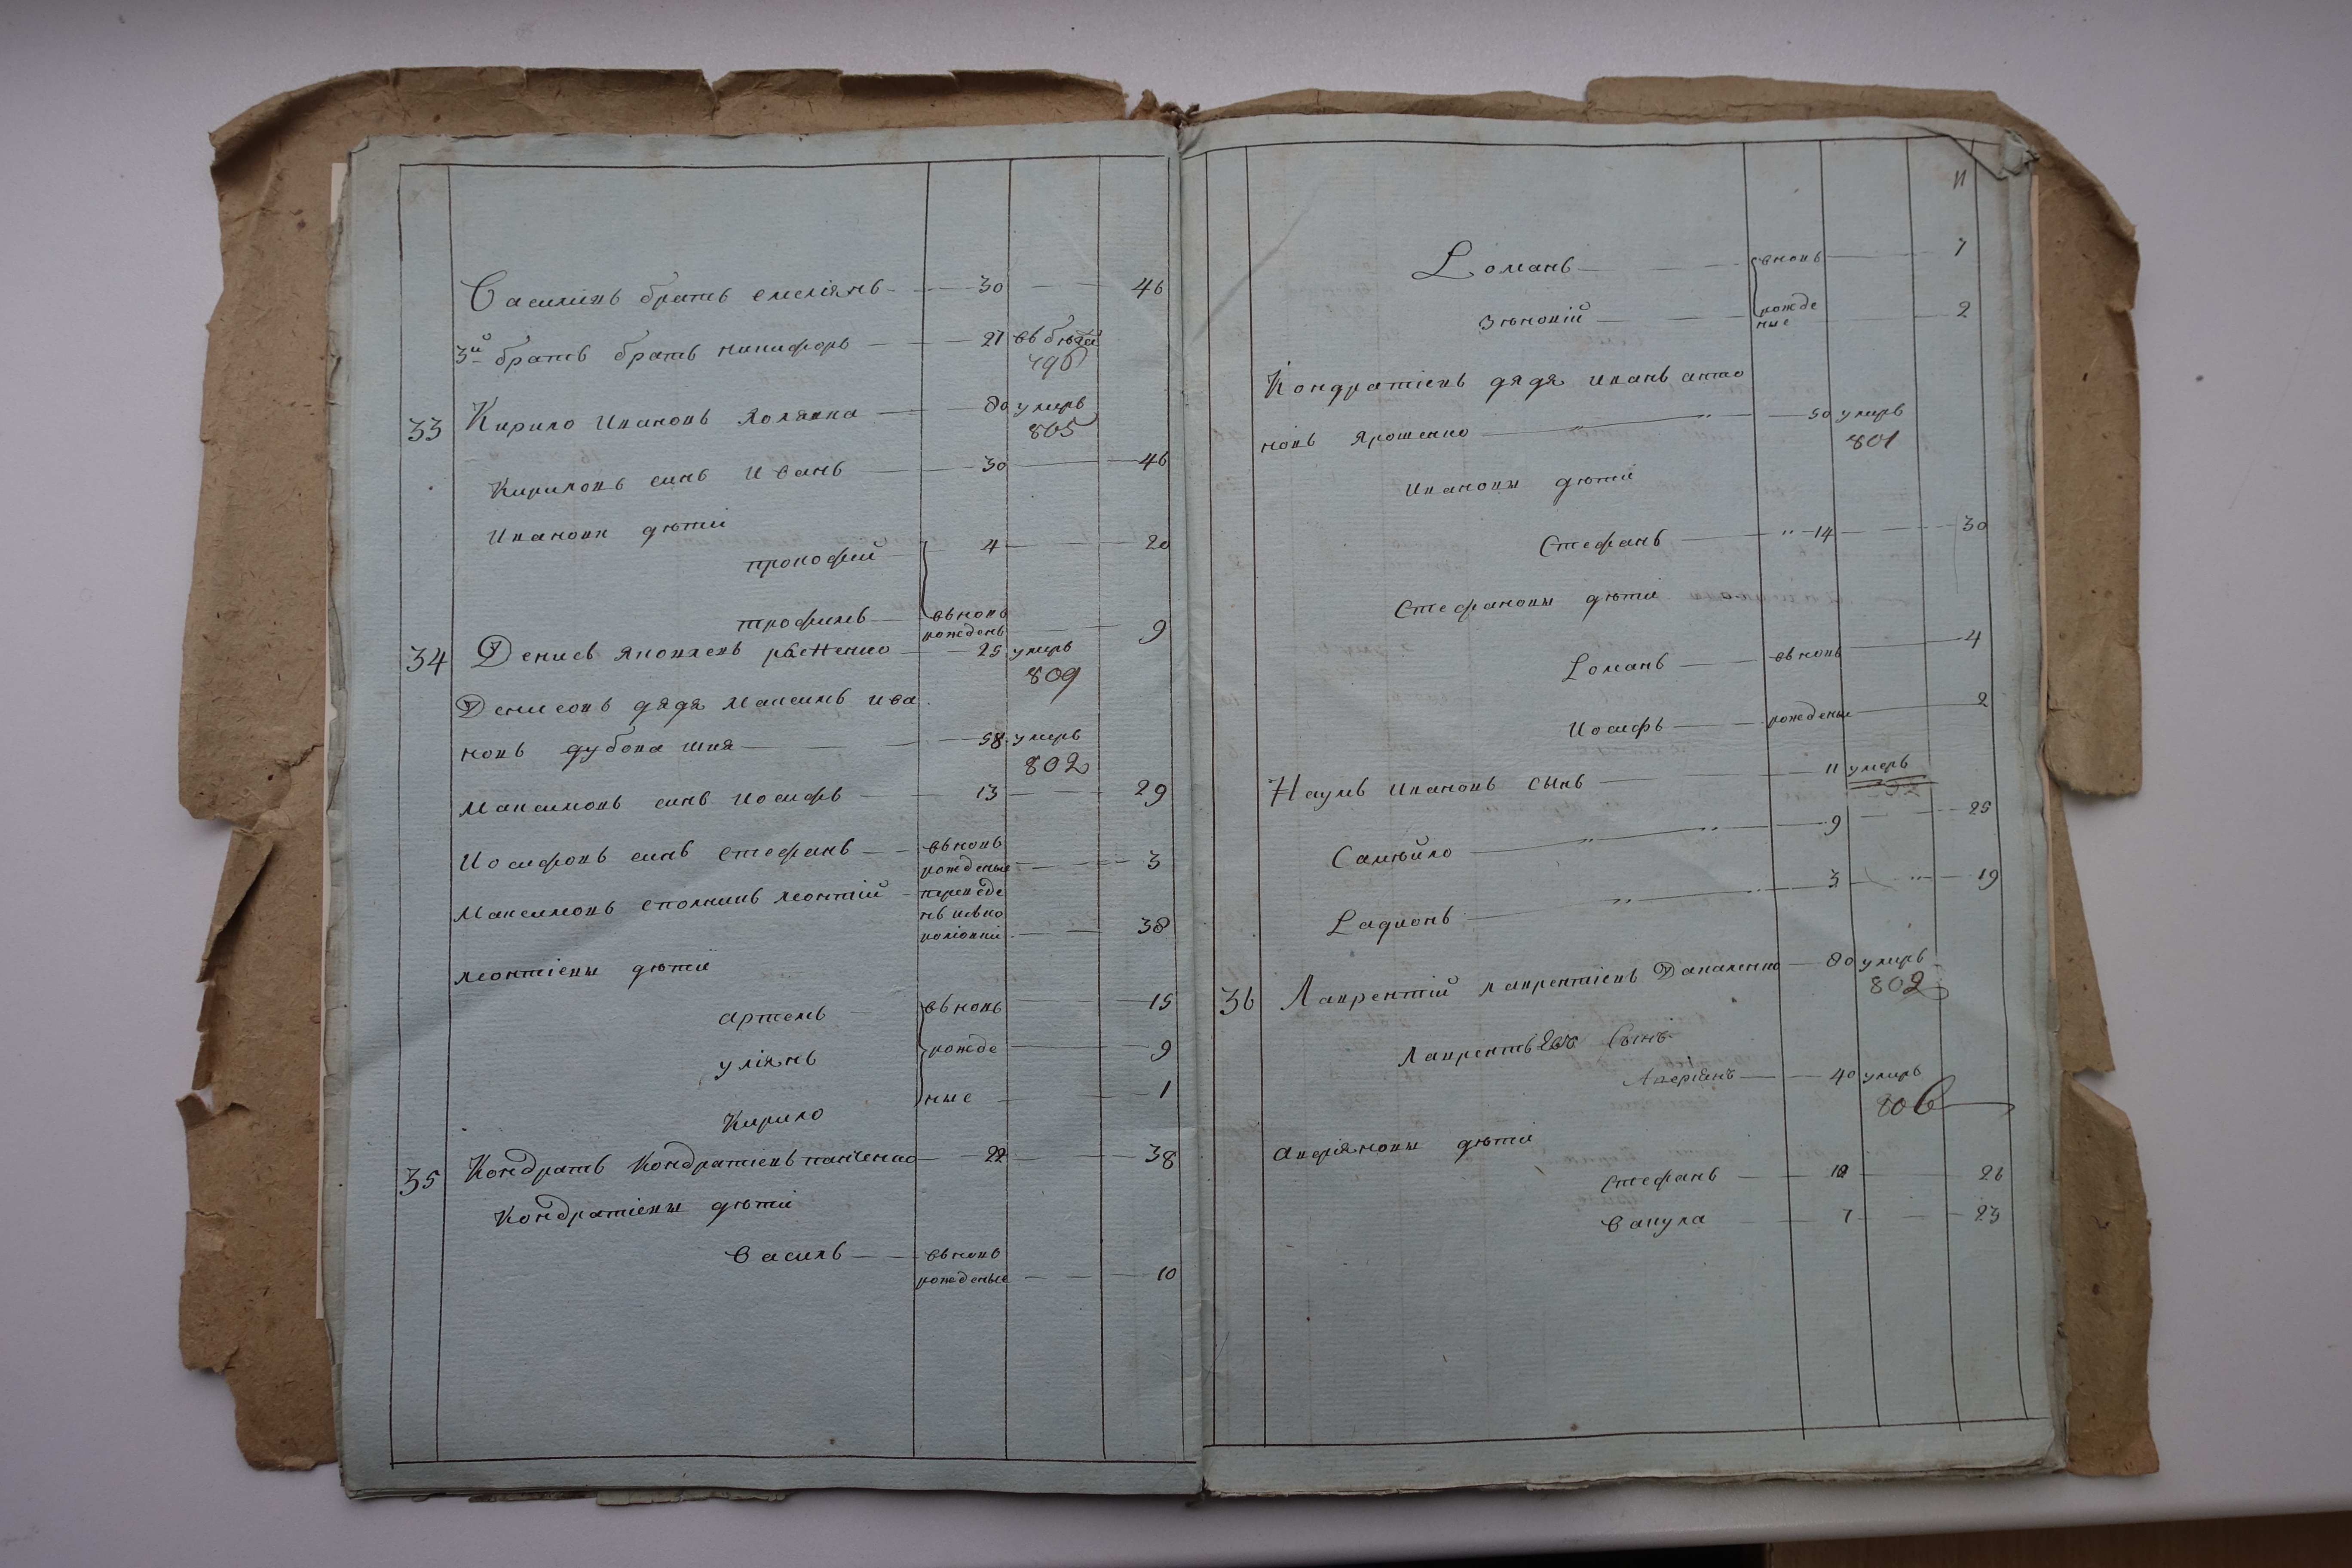 Василiвъ братъ емелiянъ 30 46
3й братъ братъ никифоръ 21 въ бѣгах
796
33 Кирило Ивановъ 80 умеръ
805
Кириловъ синъ Иванъ 30 46
Ивановы дѣти
прокофий 4 20
трофимъ въновъ
рожденъ 9
34 Денисъ яковлевъ 25 умеръ
809
Денисовъ дядя Максимъ ива
новъ дубова шия 58 умеръ
802
Максимовъ синъ Иосифъ 13 29
Иосифовъ синъ стефанъ въновъ
рожденые 3
Максимовъ леонтий переведе
нъ изъко
38
леонтiевы дѣти
артемъ въновъ 15
улiянъ рожде 9
Кирило ные 1
35 Кондратъ Кондратiевъ 22 38
Кондратiевы дѣти
василь въновъ
рожденые 10
11
Романъ въновъ 7
Зѣновiй рожде
ные 2
Кондратiевъ дядя иванъ анто
новъ Ярошенко 50 умеръ
801
Ивановы дѣти
Стефанъ 14 30
Стефановы дѣти
Романъ въновъ 4
Иосифъ рожденые 2
Наумъ Ивановъ сынъ 11 умеръ
Самуйло 9 25
Радионъ 3 19
36 Лаврентий лаврентiевъ Даваленко 80 умеръ
802
Сынъ
Аверiянъ 40 умеръ
806
аврiяновы дѣти
стефанъ 10 26
вакула 7 23